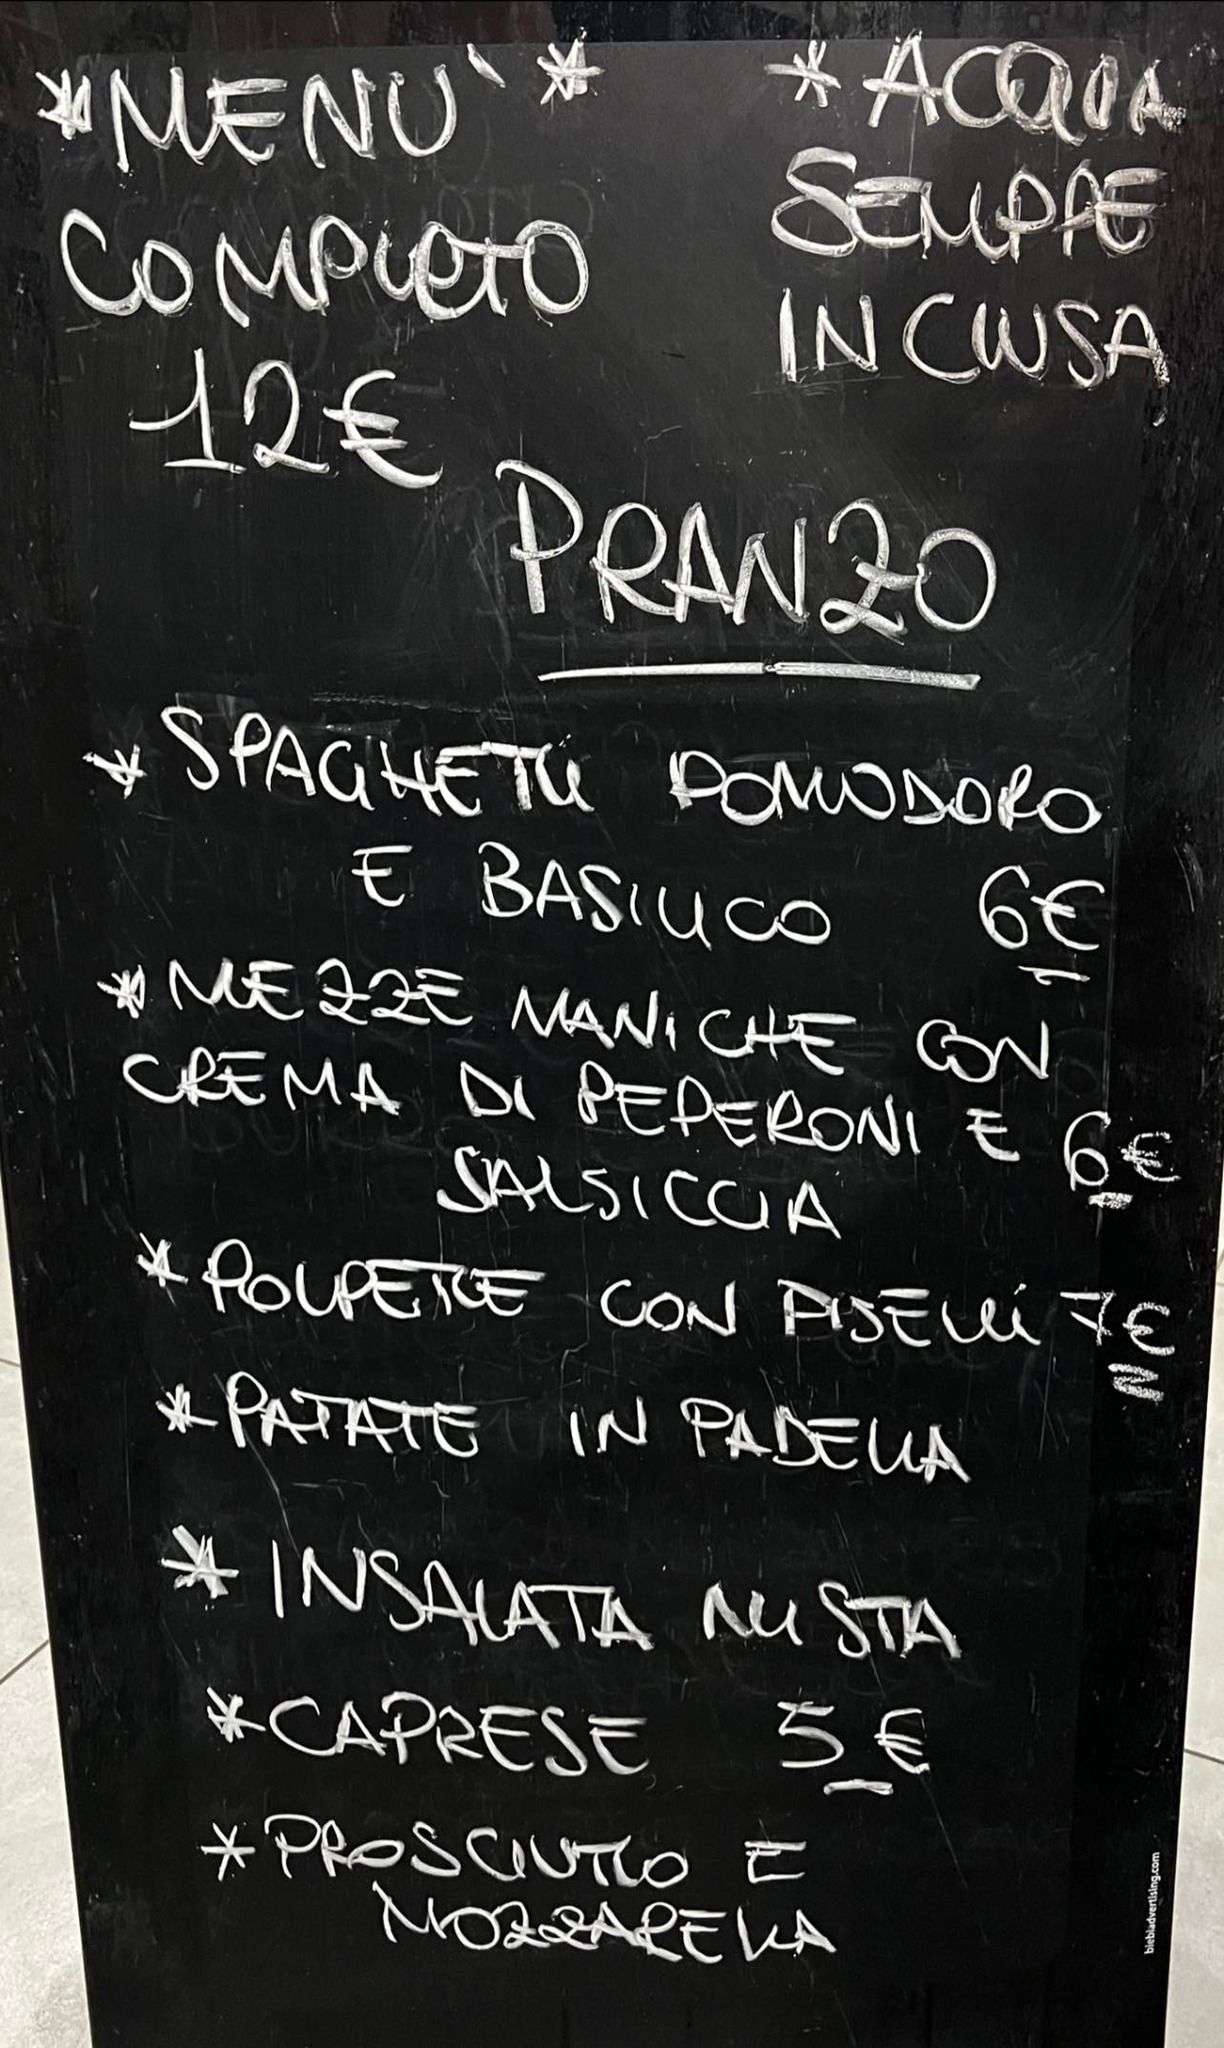 *MENU'*
COMPLETO
12€
*ACQUA
SEMPRE
INCLUSA
PRANZO
* SPAGHETTI POMODORO
E BASILICO 6€
* MEZZE MANICHE CON
CREMA DI PEPERONI E 6€
SALSICCIA
* POLPETTE CON PISELLI 7€
* PATATE IN PADELLA
* INSALATA MISTA
* CAPRESE 5€
* PROSCIUTTO E
MOZZARELLA
biebiadvertising.com